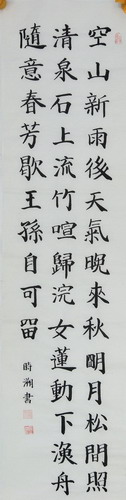 空山新雨後天氣晚來秋明月松間照
清泉石上流竹喧歸浣女蓮動下漁舟
隨意春芳歇王孫自可留
時溯書